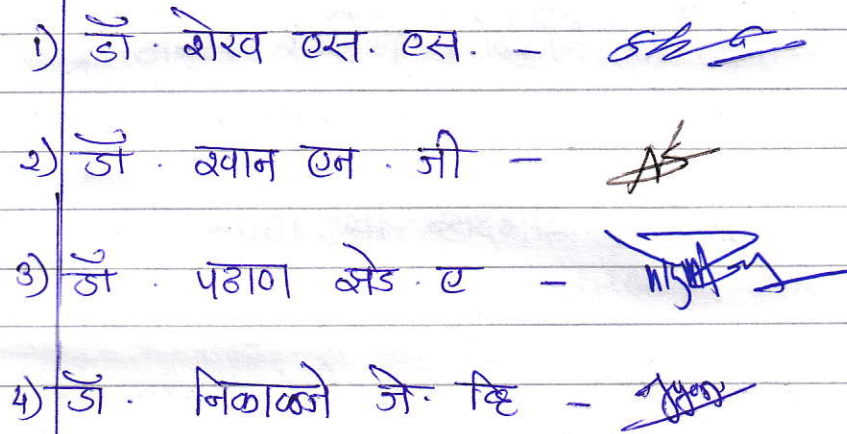 १) डॉ. शेख एस. एस. -
२) डॉ. खान एन. जी -
३) डॉ. पठाण झेड. ए -
४) डॉ. निकाळजे जे. व्हि -